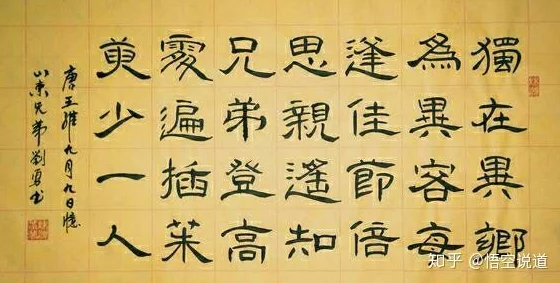 獨在異鄉
為異客每
逢佳節倍
思親遙知
兄弟登高
處遍插茱
萸少一人
唐王維九月九日憶
山東兄弟劉勇书
知乎 @悟空说道